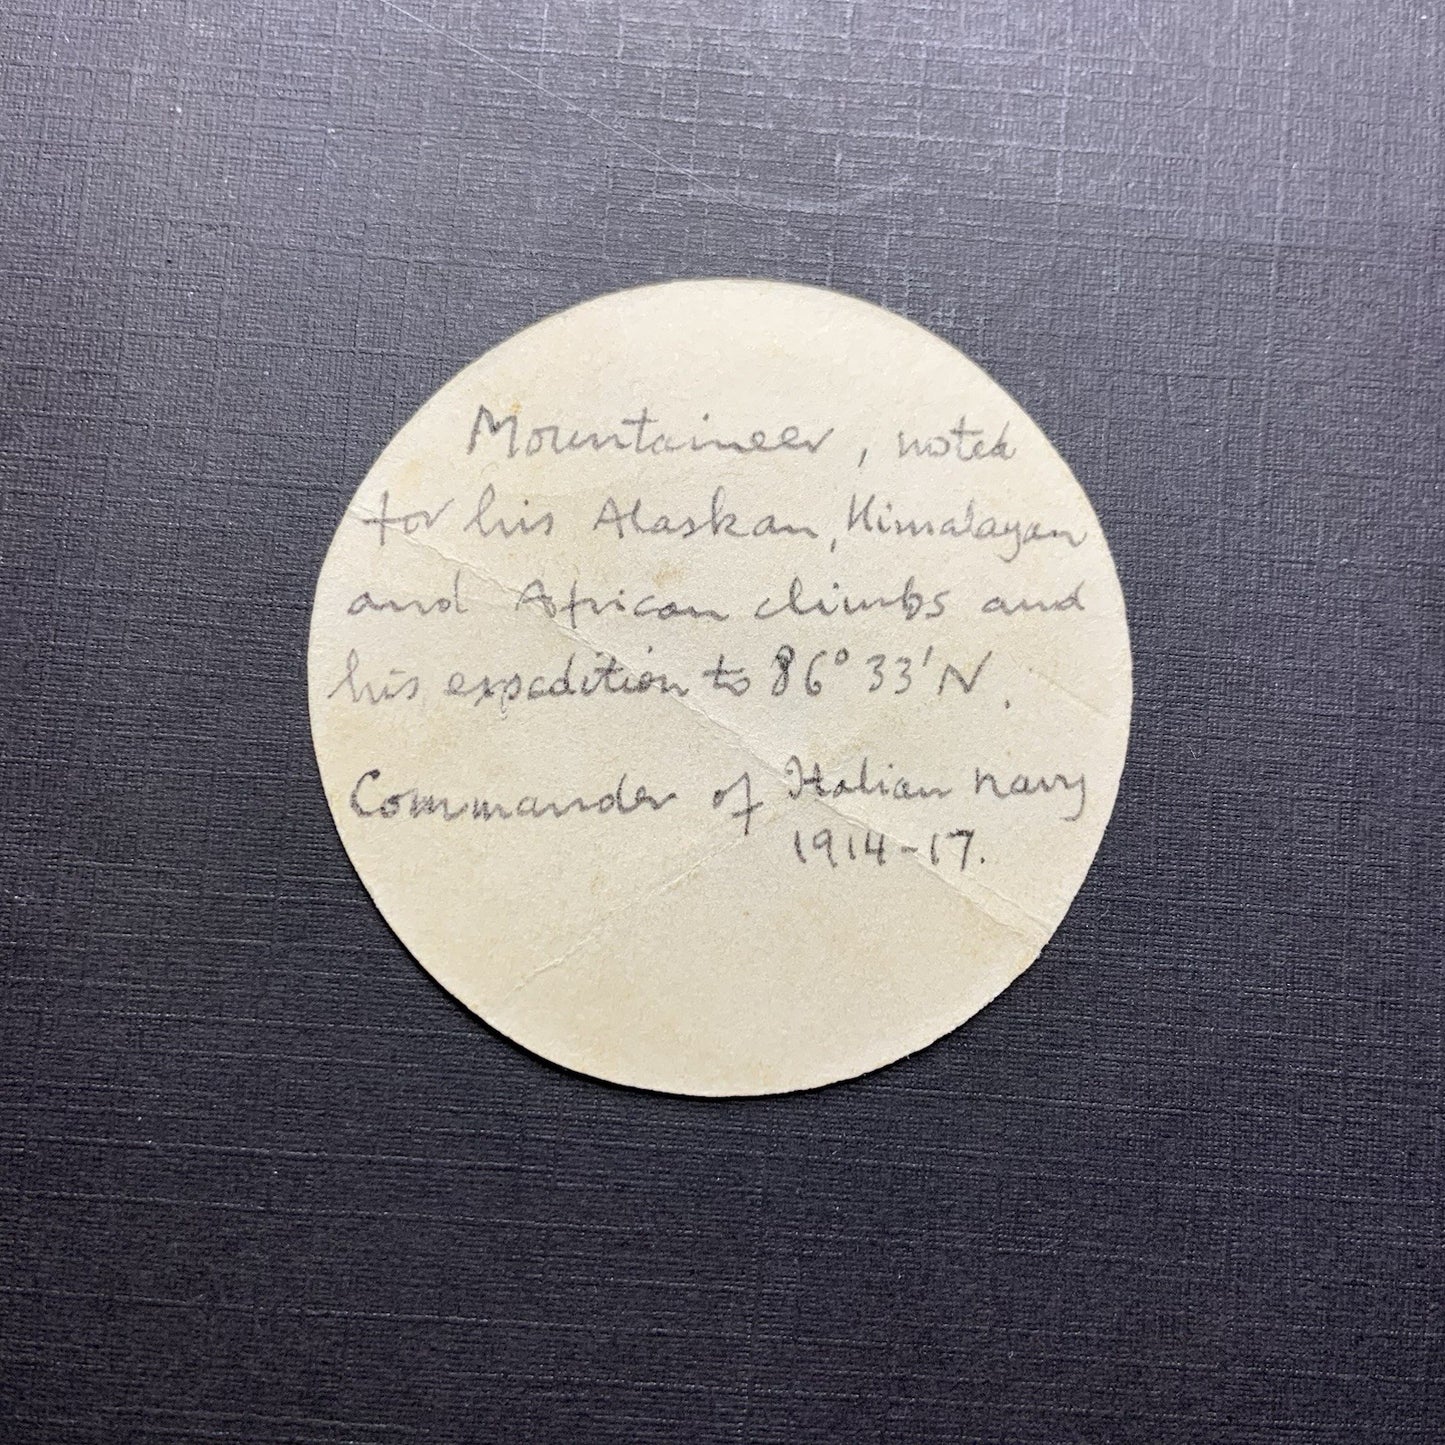 Mountaineer, noted
for his Alaskan, Himalayan
and African climbs and
his expedition to 86° 33' N.
Commander of Italian navy
1914-17.